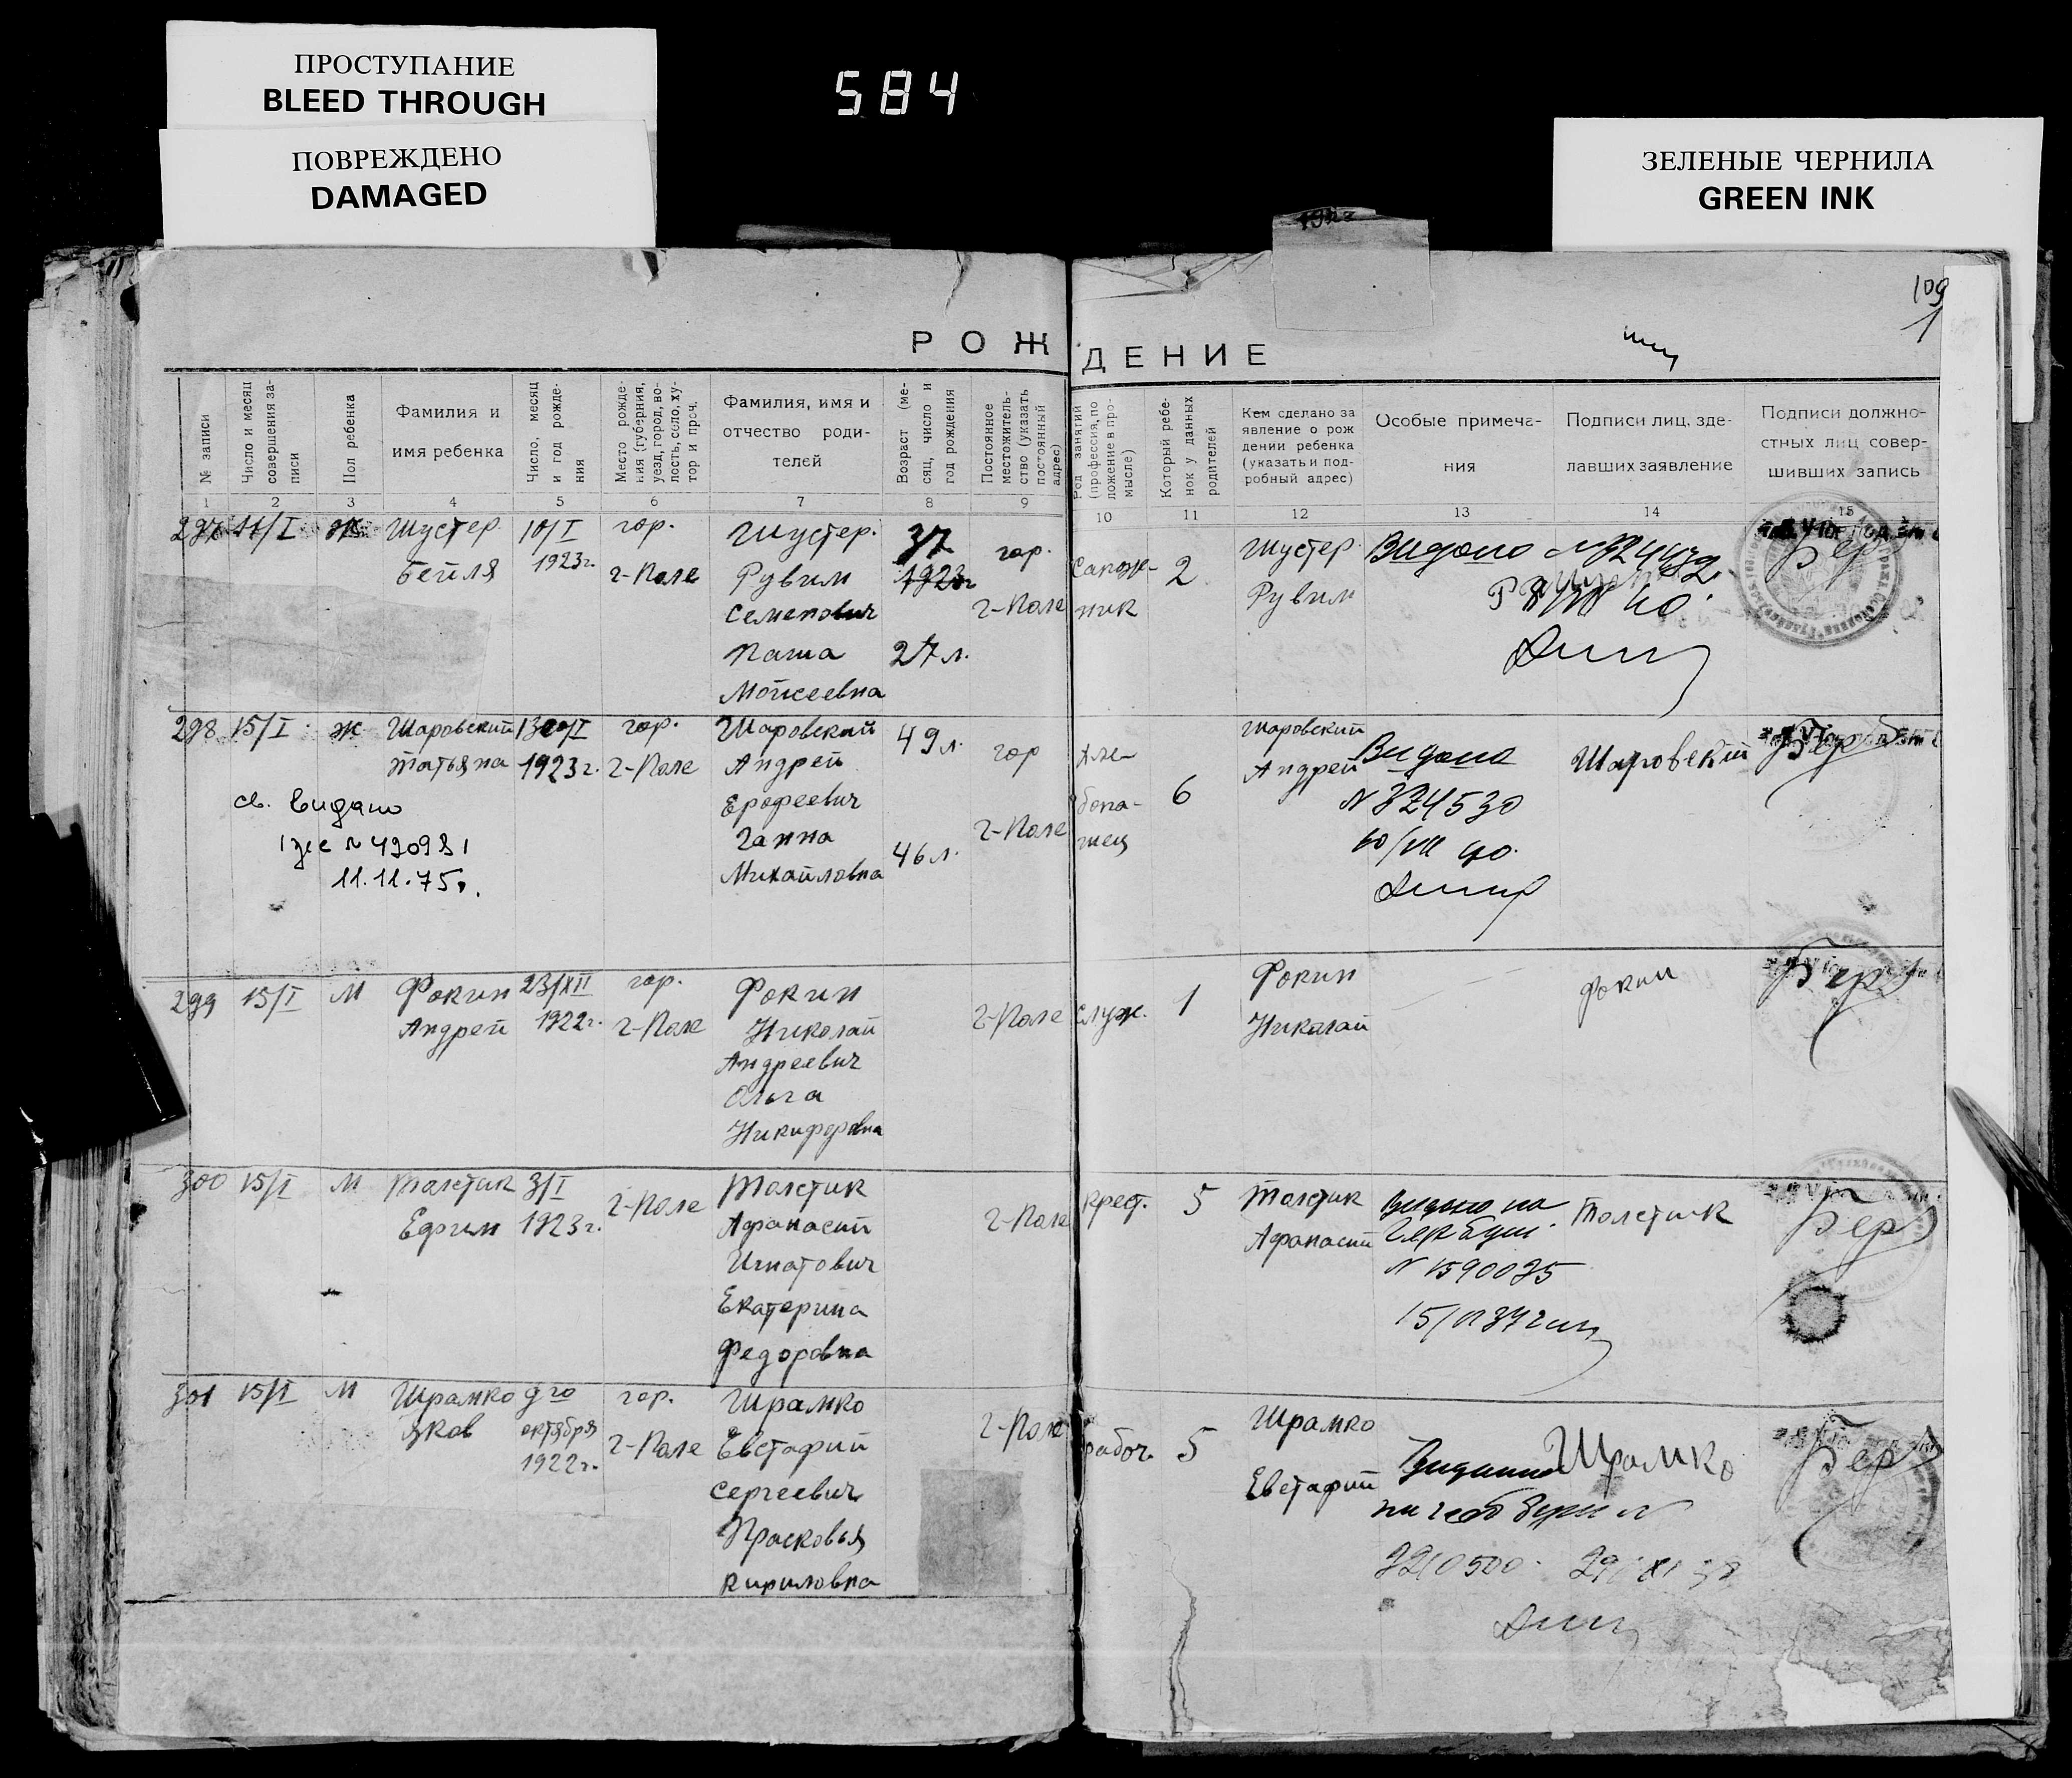 ПРОСТУПАНИЕ
BLEED THROUGH
ПОВРЕЖДЕНО
DAMAGED
584
ЗЕЛЕНЫЕ ЧЕРНИЛА
GREEN INK
109
1
РОЖДЕНИЕ
№ записи
Число и месяц совершения записи
Пол ребенка
Фамилия и
имя ребенка
Число, месяц и год рождения
Место рождения (губерния, уезд, город, волость, село, хутор и проч.
Фамилия, имя и
отчество роди-
телей
Возраст (месяц, число и год рождения
Постоянное местожительство (указать постоянный адрес)
Род занятий (профессия, положение в промысле)
Который ребенок у данных родителей
Кем сделано за
явление о рож
дении ребенка
(указать и под-
робный адрес)
Особые примеча-
ния
Подписи лиц, зде-
лавших заявление
Подписи должно-
стных лиц совер-
шивших запись
1 2 3 4 5 6 7 8 9 10 11 12 13 14 15
297 11/I ж Шустер 10/I гор. Шустер 37 гор. Сапож- 2 Шустер Видано
Бейля 1923г. Г-Поле Рувим 1923г Г-Поле ник Рувим
Семенович
Паша 27 л.
Мойсеевна
298 15/I ж Шаровский 13/I гор. Шаровский 49 л. гор хле- 6 Шаровский Видано Шаровский
Татьяна 1923г. Г-Поле Андрей Г-Поле бопа- Андрей N 324530
Ерофеевич шец 10/VII 40.
Ганна 46 л.
Михайловна
св. видано
N 420981
11.11.75г.
299 15/I М Фокин 23/XII гор. Фокин Г-Поле служ. 1 Фокин Фокин
Андрей 1922г. Г-Поле Николай Николай
Андреевич
Ольга
Никифоровна
300 15/I М Толстик 3/I Г-Поле Толстик Г-Поле крест. 5 Толстик Видано на Толстик
Ефим 1923г. Афанасий Афанасий
Игнатович N 1590035
Екатерина
Федоровна
301 15/I М Шрамко 9го гор. Шрамко Г-Поле рабоч. 5 Шрамко Шрамко
Яков октября Г-Поле Евстафий Евстафий
1922г. Сергеевич
Прасковья
Кириловна